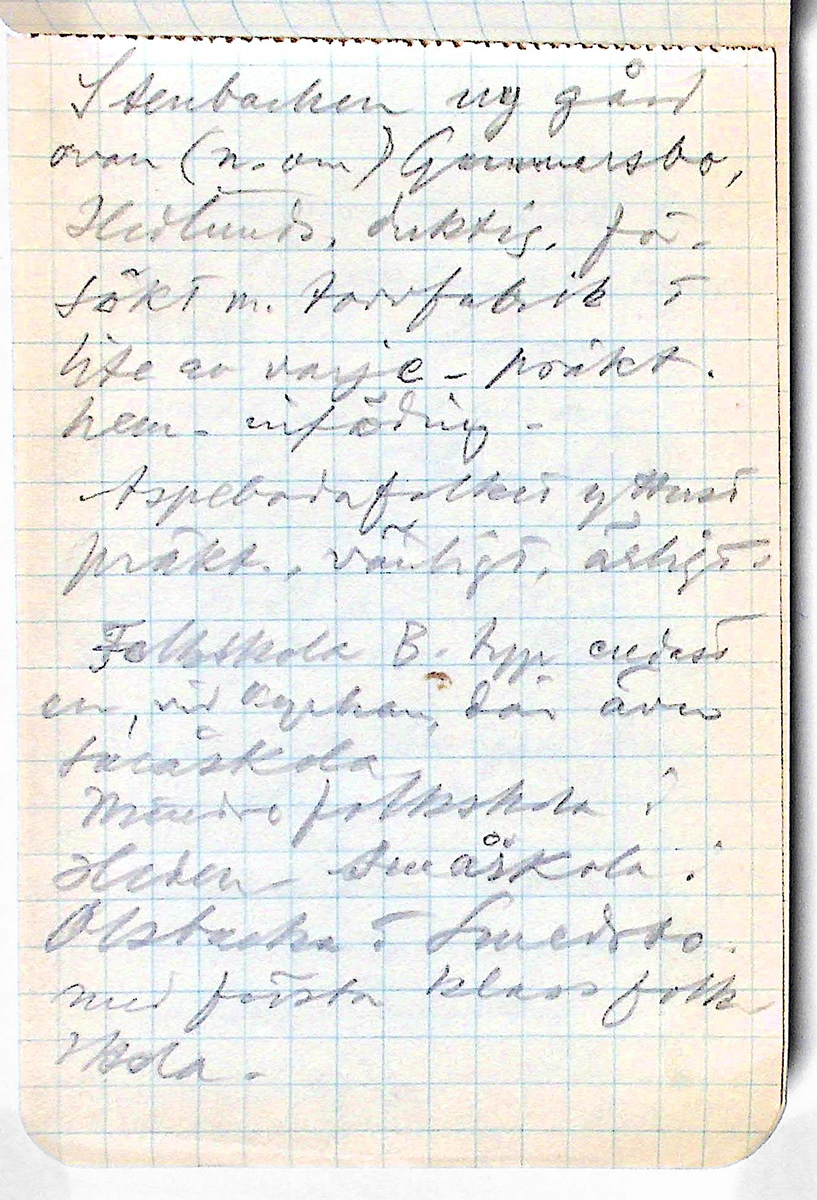 Stenbacken ny gård
ovan (n. om) Gunnarsbo,
Hedlunds, duktig, för-
sökt m. torvfabrik o
lite av varje - präkt.
hem - inföding -
Aspebodafolket ytterst
präkt., vänligt, ärligt.
Folkskola B. typ endast
en, vid kyrkan, där även
småskola
Mindre folkskola i
Heden småskola i
Olsbacka o Smedsbo.
med första klass folk
skola.